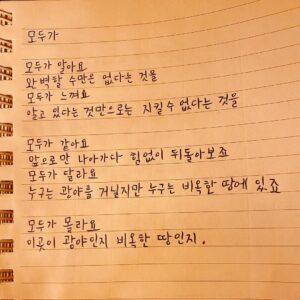 모두가
모두가 알아요
완벽할 수만은 없다는 것을
모두가 느껴요
알고 있다는 것만으로는 지킬 수 없다는 것을
모두가 같아요
앞으로만 나아가다 힘없이 뒤돌아보죠
모두가 달라요
누구는 광야를 거닐지만 누구는 비옥한 땅에 있죠
모두가 몰라요
이곳이 광야인지 비옥한 땅인지.